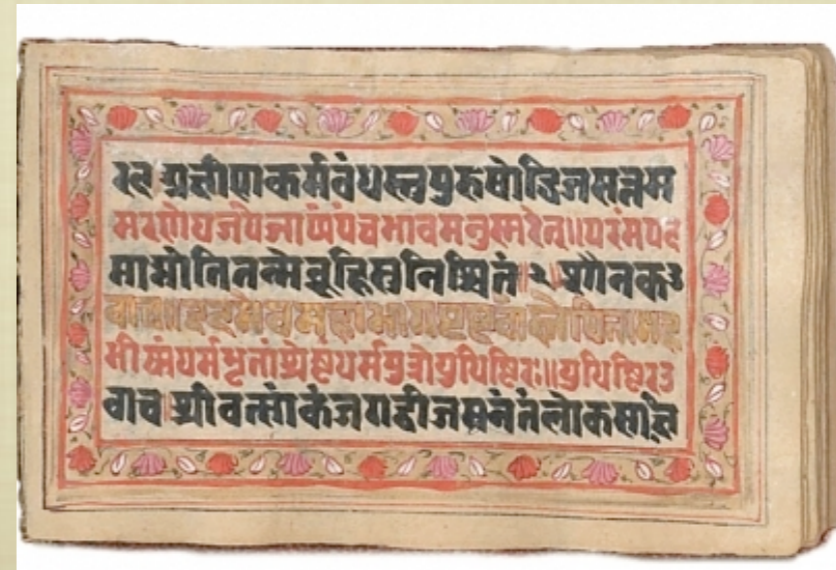 रत प्रलीणाकर्मवंधस्तुपुरुषोद्विजसत्तम
मरणेयजंपेजाप्यंपंचभावमनुस्मरेत्॥परंमपद
माप्नोतितन्मेब्रूहिसुनिश्चितं २ शौनकउ
वाच॥इदमेवमहाभागपृष्टवांस्तेपितामह
भीष्मंधर्मभृतांश्रेष्टधर्मपुत्रोयुधिष्टिरः॥युधिष्टिरउ
वाच श्रीवत्सांकंजगद्वीजमनंतंलोकसा